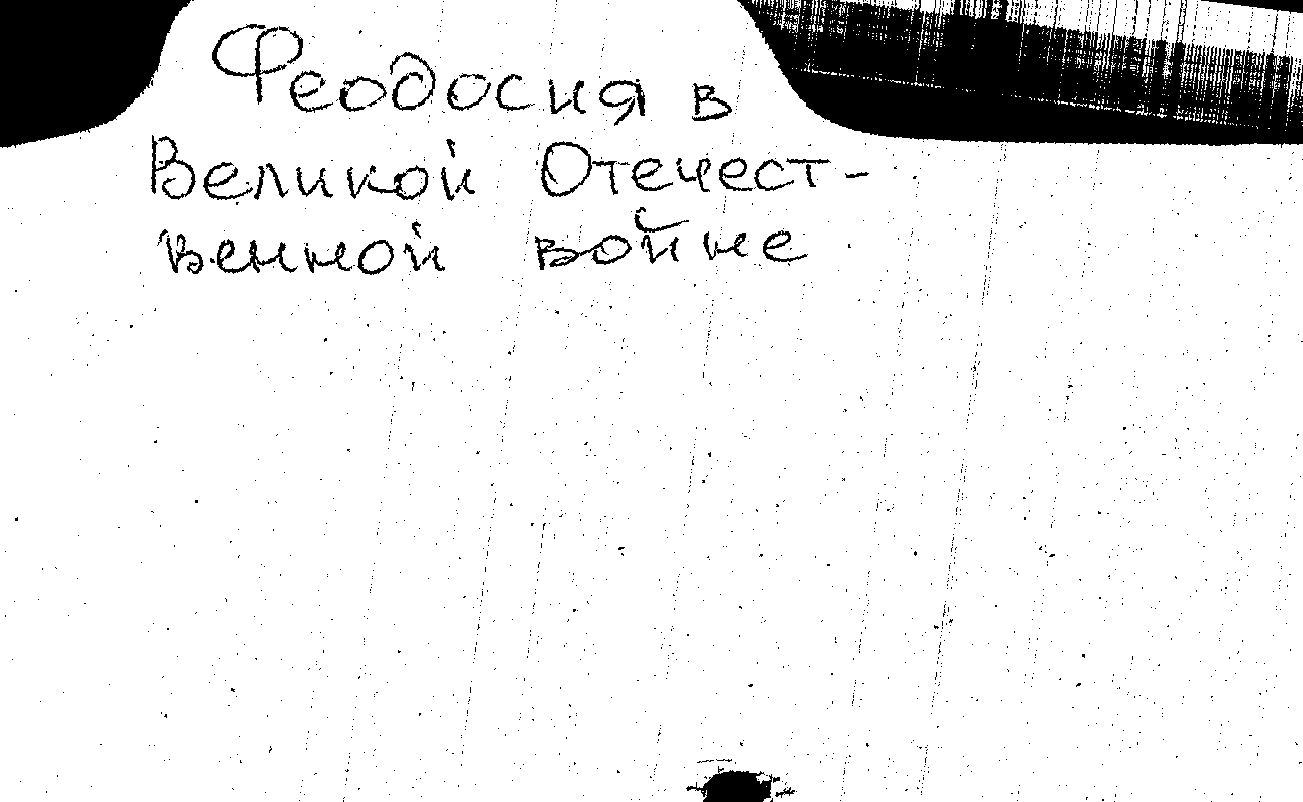 Феодосия в
Великой Отечест-
венной войне